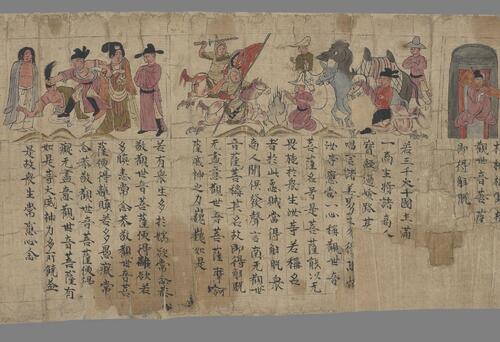 觀世音菩薩
即得解脫
若三千大千國土滿
一商主將諸商人
寶經過險路其
唱言諸善男子勿得恐怖
汝等應當一心稱觀世音
菩薩名号是菩薩能以无
畏施於衆生汝等若稱名
者於此怨賊當得解脫衆
商人聞俱發聲言南无觀世
音菩薩稱其名故即得解脫
无盡意觀世音菩薩摩訶
薩威神之力巍巍如是
若有衆生多於婬欲常念恭
敬觀世音菩薩便得離欲若
多瞋恚常念恭敬觀世音菩
薩便得離瞋若多愚癡常
念恭敬觀世音菩薩便得
无盡意觀世音菩薩有
如是等大威神力多所饒益
是故衆生常應心念